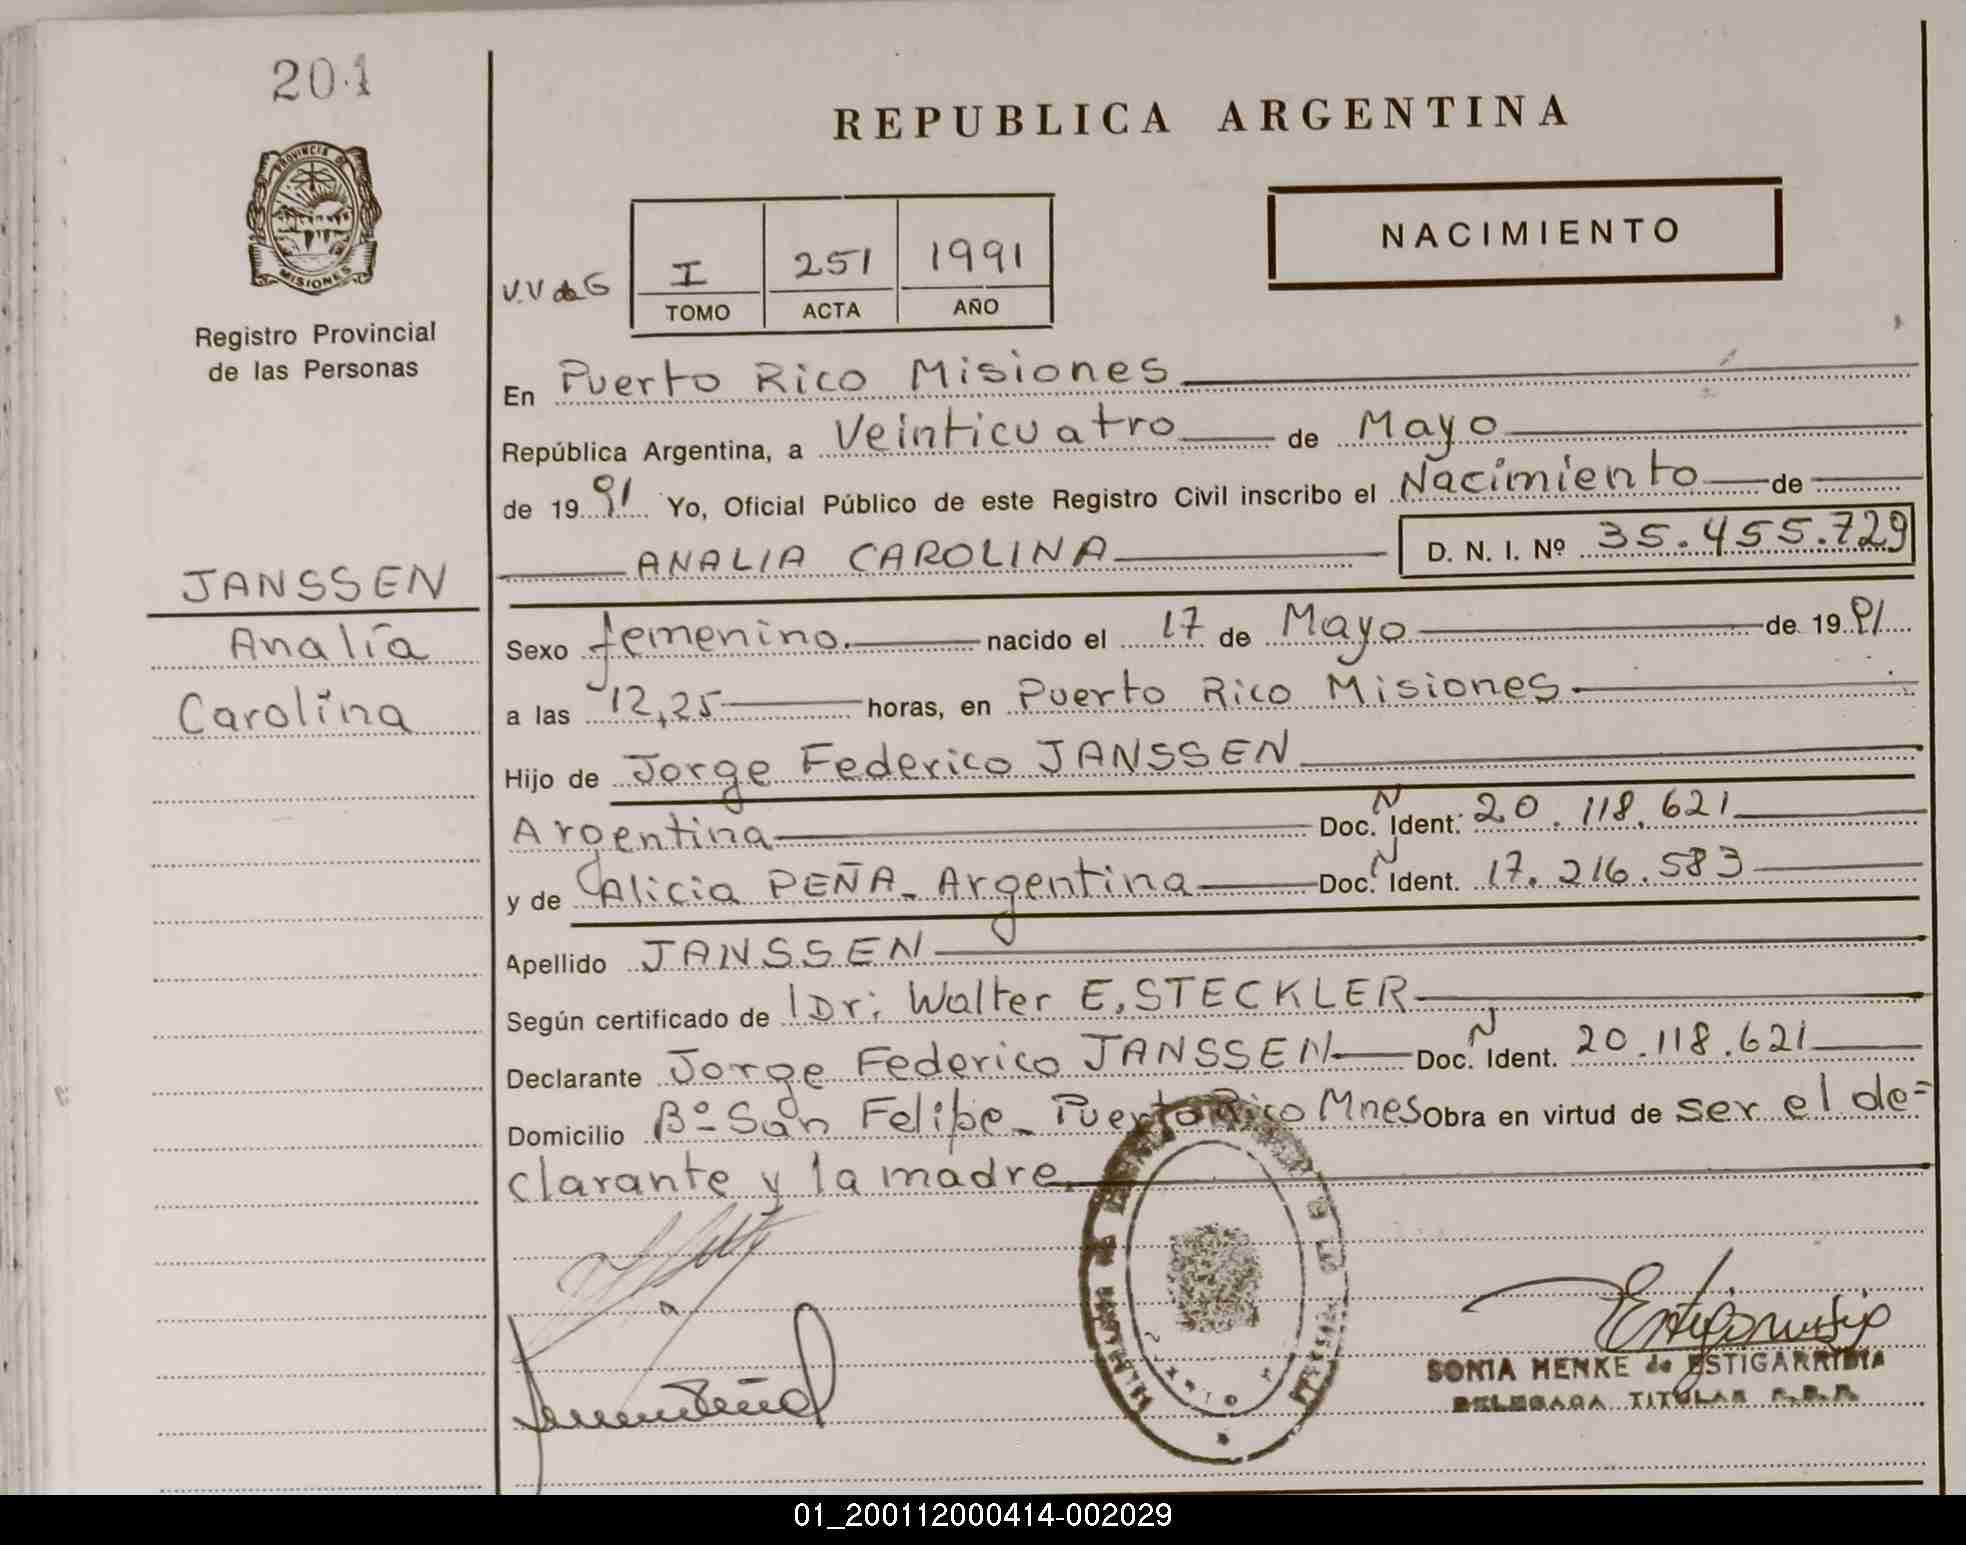 201
PROVINCIA DE
MISIONES
Registro Provincial
de las Personas
JANSSEN
Analía
Carolina
REPUBLICA ARGENTINA
NACIMIENTO
V.V de G
I 251 1991
TOMO ACTA AÑO
En Puerto Rico Misiones
República Argentina, a Veinticuatro de Mayo
de 1991 Yo, Oficial Público de este Registro Civil inscribo el Nacimiento de
ANALIA CAROLINA D. N. I. Nº 35.455.729
Sexo femenino. nacido el 17 de Mayo de 1991
a las 12,25 horas, en Puerto Rico Misiones.
Hijo de Jorge Federico JANSSEN
Argentina Doc. N Ident. 20.118.621
y de Alicia PEÑA - Argentina Doc. N Ident. 17.216.583
Apellido JANSSEN
Según certificado de Dr: Walter E. STECKLER
Declarante Jorge Federico JANSSEN Doc. N Ident. 20.118.621
Domicilio Bº San Felipe - Puerto Rico Mnes Obra en virtud de ser el de=
clarante y la madre.
SONIA HENKE de ESTIGARRIBIA
DELEGADA TITULAR R.D.P.
01_200112000414-002029